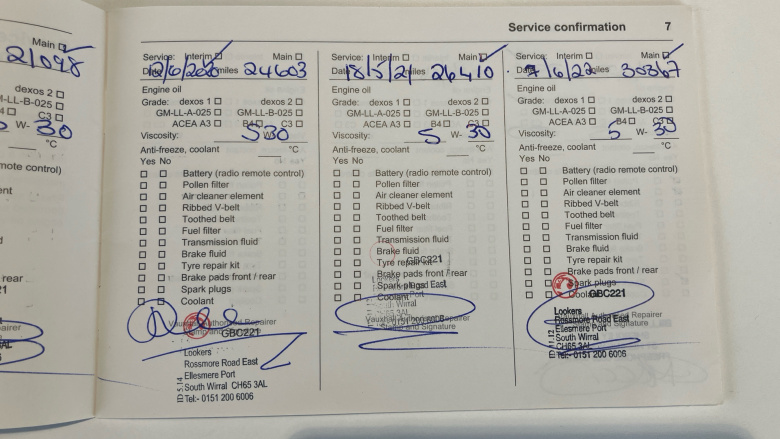 Service confirmation 7
Main
21098
dexos 2
M-LL-B-025
C3
W- 30
°C
mote control)
rear
Service: Interim Main
Date miles 24603
Engine oil
Grade: dexos 1 dexos 2
GM-LL-A-025 GM-LL-B-025
ACEA A3 B4 C3
Viscosity: 5 W- 30
Anti-freeze, coolant °C
Yes No
Battery (radio remote control)
Pollen filter
Air cleaner element
Ribbed V-belt
Toothed belt
Fuel filter
Transmission fluid
Brake fluid
Tyre repair kit
Brake pads front / rear
Spark plugs
Coolant
Vauxhall Authorised Repairer
GBC221
Lookers
Rossmore Road East
Ellesmere Port
South Wirral CH65 3AL
Tel:- 0151 200 6006
Service: Interim Main
Date 18/5/21 miles 26410
Engine oil
Grade: dexos 1 dexos 2
GM-LL-A-025 GM-LL-B-025
ACEA A3 B4 C3
Viscosity: 5 W- 30
Anti-freeze, coolant °C
Yes No
Battery (radio remote control)
Pollen filter
Air cleaner element
Ribbed V-belt
Toothed belt
Fuel filter
Transmission fluid
Brake fluid
Tyre repair kit
GBC221
Brake pads front / rear
Spark plugs
Coolant
Vauxhall Authorised Repairer
Stamp and Signature
Service: Interim Main
Date 7/6/22 miles 30367
Engine oil
Grade: dexos 1 dexos 2
GM-LL-A-025 GM-LL-B-025
ACEA A3 B4 C3
Viscosity: 5 W- 30
Anti-freeze, coolant °C
Yes No
Battery (radio remote control)
Pollen filter
Air cleaner element
Ribbed V-belt
Toothed belt
Fuel filter
Transmission fluid
Brake fluid
Tyre repair kit
Brake pads front / rear
Spark plugs
Coolant
GBC221
Lookers
Rossmore Road East
Ellesmere Port
South Wirral
CH65 3AL
Tel:- 0151 200 6006